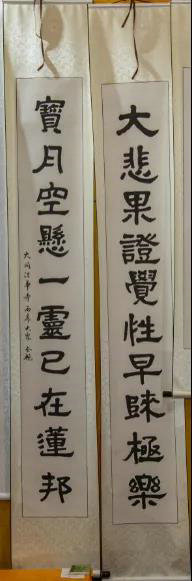 大悲果證覺性早歸極樂
寶月空懸一靈已在蓮邦